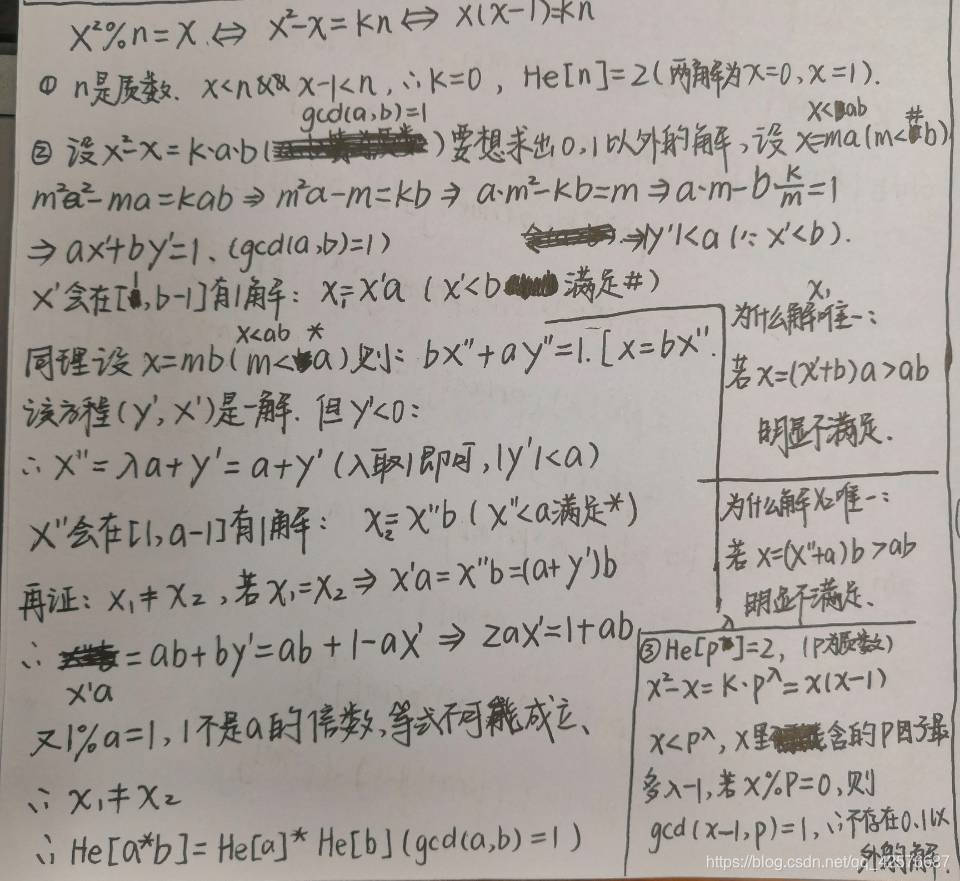 x²%n=x ⇔ x²-x=kn ⇔ x(x-1)=kn
① n是质数. x<n&&x-1<n, ∴k=0, He[n]=2(两解为x=0,x=1).
gcd(a,b)=1
x<ab
② 设x²-x=k·a·b( )要想求出0,1以外的解,设x=ma(m<b)#
m²a²-ma=kab⇒m²a-m=kb⇒a·m²-kb=m⇒a·m-b·k/m=1
⇒ax'+by'=1.(gcd(a,b)=1) ⇒|y'|<a(∵x'<b).
x'会在[1,b-1]有1解: x₁=x'a(x'<b 满足#)
x<ab *
同理设x=mb(m<a)则: bx''+ay''=1.[x=bx''.
该方程(y',x')是一解.但y'<0:
∴x''=λa+y'=a+y'(λ取1即可,|y'|<a)
x''会在[1,a-1]有1解: x₂=x''b(x''<a满足*)
再证: x₁≠x₂,若x₁=x₂⇒x'a=x''b=(a+y')b
∴ =ab+by'=ab+1-ax'⇒2ax'=1+ab
x'a
又1%a=1,1不是a的倍数,等式不可能成立、
∴x₁≠x₂
∴He[a*b]=He[a]*He[b](gcd(a,b)=1)
x₁
为什么解唯一:
若x=(x'+b)a>ab
明显不满足.
为什么解x₂唯一:
若x=(x''+a)b>ab
明显不满足、
③He[p^λ]=2,(P为质数)
x²-x=k·p^λ=x(x-1)
x<p^λ,x里 能含的P因子最
多λ-1,若x%p=0,则
gcd(x-1,p)=1,∴不存在0.1以
外的解.
https://blog.csdn.net/qq_42576687